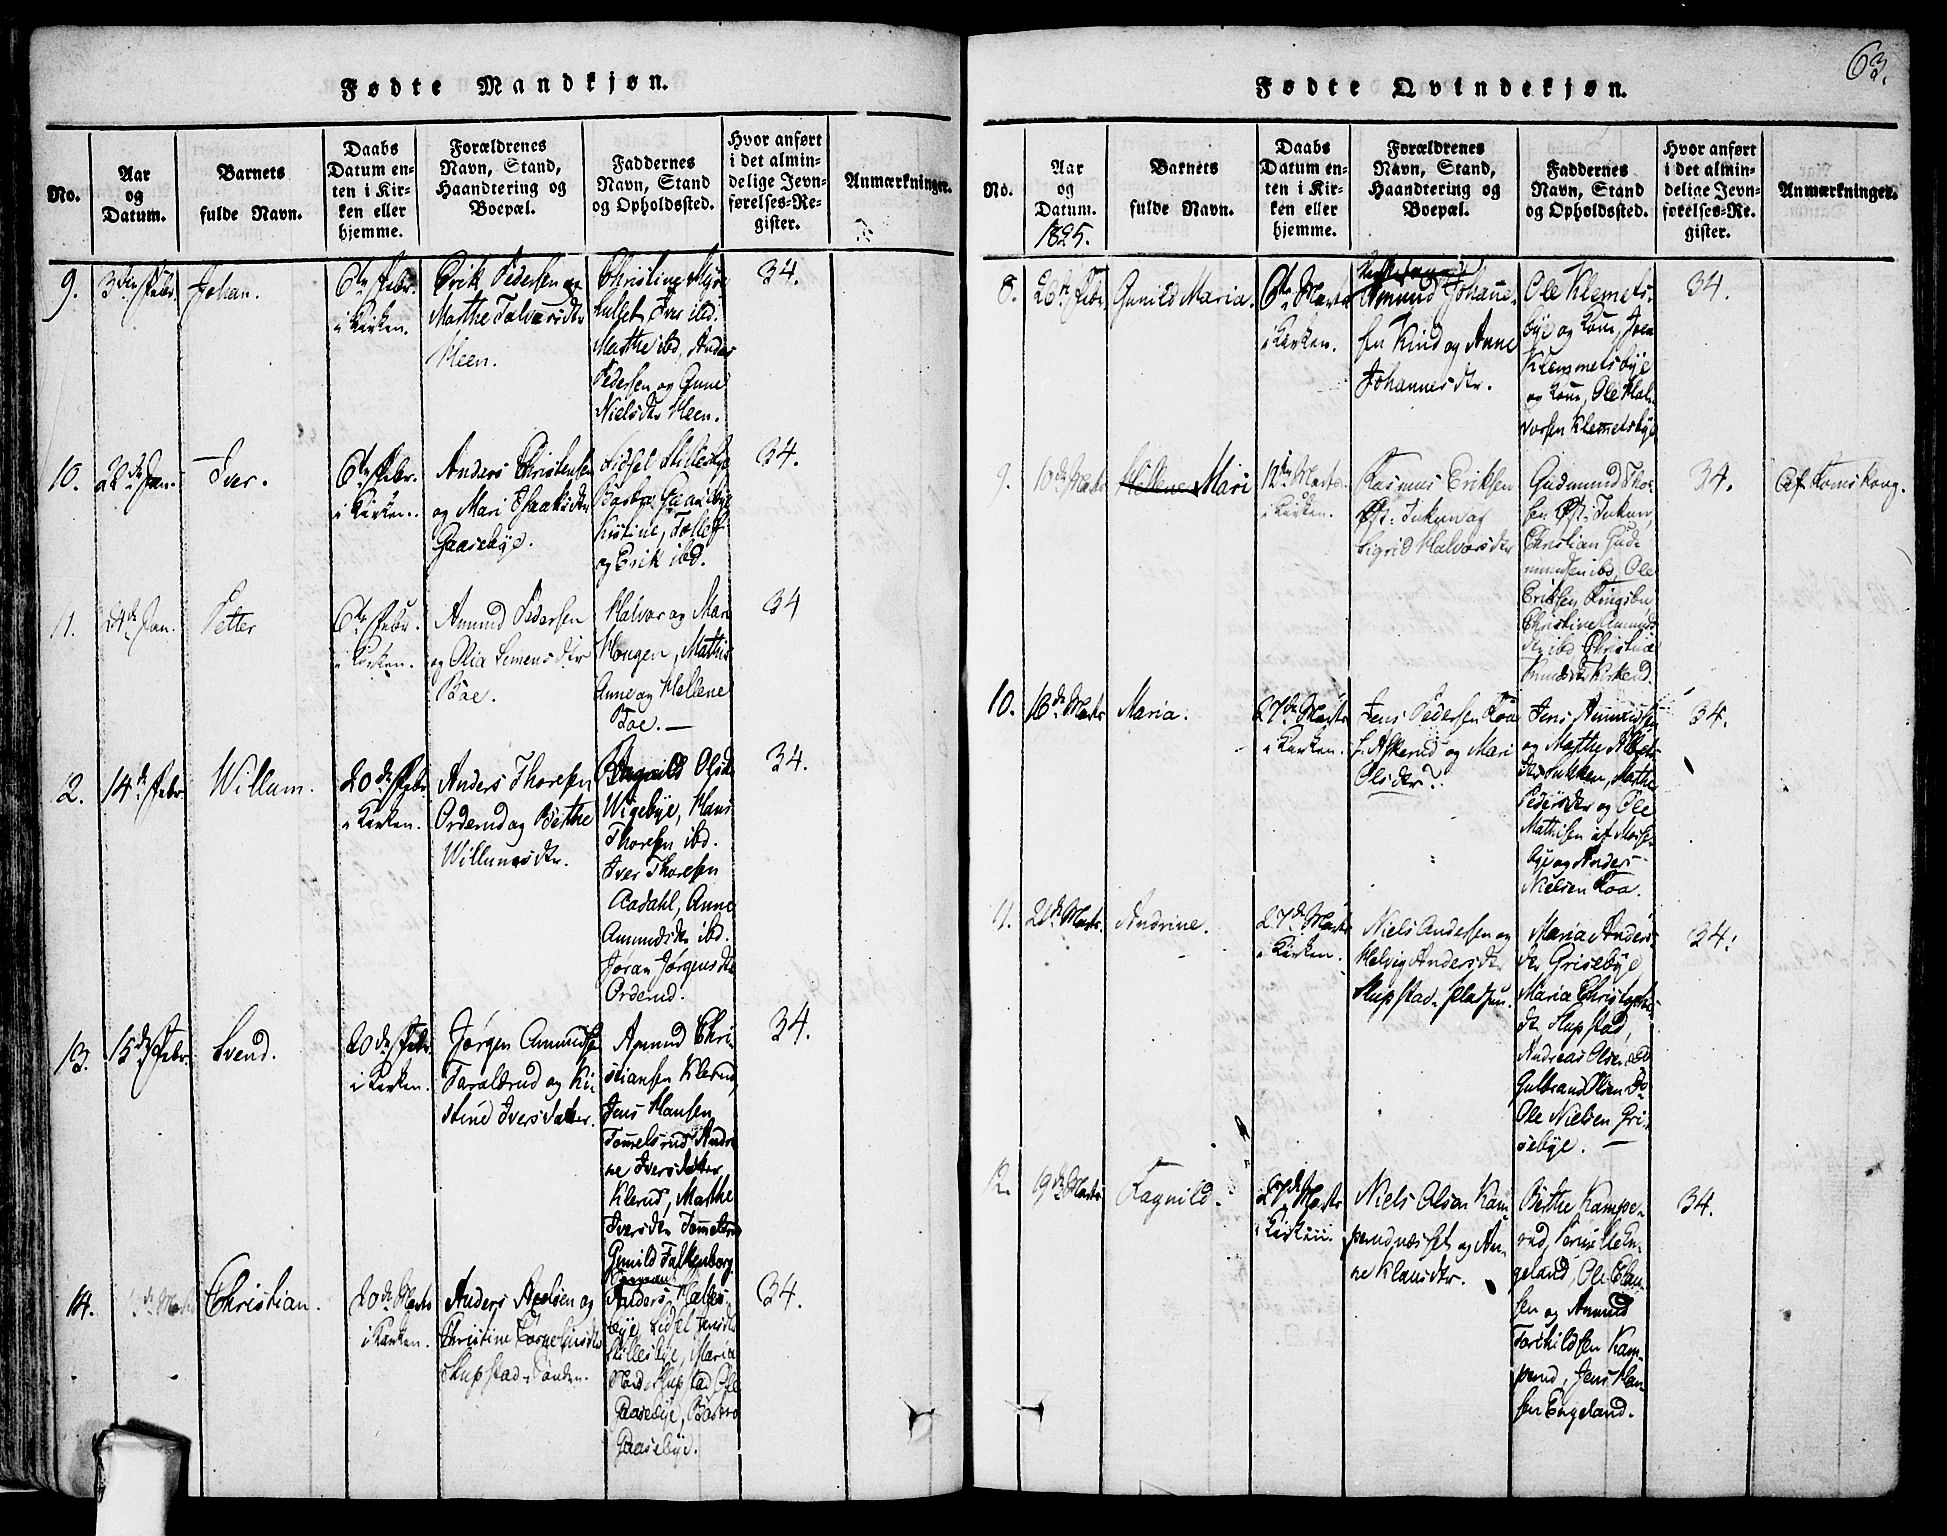 63.
Fødte Mandkjøn.
No.
Aar
og
Datum.
Barnets
fulde Navn.
Daabs
Datum en-
ten i Kir-
ken eller
hjemme.
Forældrenes
Navn, Stand,
Haandtering og
Boepæl.
Faddernes
Navn, Stand
og Opholdssted.
Hvor anført
i det almin-
delige Jevn-
førelses-Re-
gister.
Anmærkninger.
9.
3die Febr.
Johan.
6te Febr.
i Kirken.
Erik Pedersen og
Marthe
Heen.
Christine
Iver ibd.
Marthe ibd, Anders
Pedersen og Anne
Nielsdtr Heen.
34.
10.
28de Jan.
Iver.
6te Febr.
i Kirken.
Anders Christensen
og Mari Isaaksdtr
Gaasebye.
Sidsel
Gaasebye
Kistine,
og Erik ibd.
34.
11.
24de Jan.
Petter
6te Febr.
i Kirken.
Amund Pedersen
og Olia Simensdtr
Boe.
Halvor og Mari
Haugen, Mathis
Anne og Hellene
Boe. —
34
2.
14de Febr.
Willum.
20de Febr.
i Kirken.
Anders Thoresen
Orderud og Berthe
Willumsdtr.
Ragnild Olsdtr
Wigebye, Hans
Thoresen ibd.
Iver Thoresen
Aadahl, Anne
Amundsdtr ibd.
Jøran Jørgensdtr
Orderud.
34.
13.
15de Febr.
Svend.
20de Febr.
i Kirken.
Jørgen Amundsen
Taraldrud og Ki-
stine Iversdatter.
Amund Chri-
stiansen Klerud,
Jens Hansen
Tomelsrud Andri-
ne Iversdatter
Klerud, Marthe
Iversdtr Tommelsrud
Gunild Falkenborg
34.
14.
Marts
Christian.
20de Marts
i Kirken.
Anders Axelsen og
Christine Corneliusdtr
Skupstad
Anders
bye, Sidsel Jensdtr
Skillesbye, Maria
Skupstad, Ole
Gaasebye,
Gaasebye.
34.
Fødte Qvindekjøn.
No.
Aar
og
Datum.
1825.
Barnets
fulde Navn.
Daabs
Datum en-
ten i Kir-
ken eller
hjemme.
Forældrenes
Navn, Stand,
Haandtering og
Boepæl.
Faddernes
Navn, Stand
og Opholdssted.
Hvor anført
i det almin-
delige Jevn-
førelses-Re-
gister.
Anmærkninger.
8.
26de Febr.
Gunild Maria.
6te Marts
i Kirken.
Amund Johanne-
sen Kind og Anne
Johannesdtr.
Ole Klemets-
bye og Kone, Joen
Klemmetsbye
og Kone, Ole Hal-
vorsen Klemetsbye
34.
9.
10de Marts
Hellene Mari
12te Marts
i Kirken.
Rasmus Eriksen
Øst-
Sigrid Halvorsdtr
Gudmund Thor-
sen Øst-
Christian Gude-
mundsen ibd, Ole
Eriksen
Christine Amunds-
dtr ibd Christine
Knudsdtr Kirkerud.
34.
Af Romskoug.
10.
16de Marts
Maria.
27de Marts
i Kirken.
Jens Pedersen Toa
og Mari
Olsdtr.
Jens Amundsen
og Marthe
Marthe
Pedersdtr og Ole
Mathisen af Mose-
bye og Anders
Nielsen Toa.
34.
11.
20de Marts.
Andrine.
27de Marts
i Kirken.
Niels Andersen og
Helvig Andersdtr
Skupstad-pladsen.
Maria Anders-
dtr Grisebye,
Maria Christophers-
dtr Skupstad,
Andreas Olsen
Gulbrand Olsen Do
Ole Nielsen Gri-
sebye. —
34.
12.
19de Marts
Ragnild.
27de Marts
i Kirken.
Niels Olsen Kam-
perudnæsset og An-
ne Klausdtr.
Berthe Kampe-
rud, Pernille En-
geland, Ole Clau-
sen og Amund
Torkildsen Kam-
perud, Jens Han-
sen Engeland.
34.